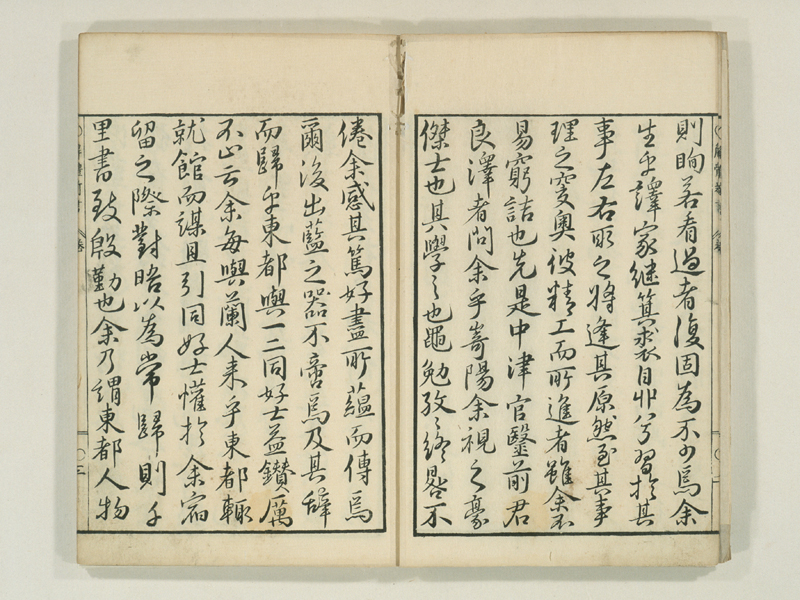 則眴若看過者復固為不少焉余
生乎譯家継箕裘自丱兮習於其
事左右取之将逢其原然至其事
理之窔奥彼精工而所進者雖余不
易窮詰也先是中津官醫前君
良澤者問余乎嵜陽余視之豪
傑士也其學之也黽勉孜〻終晷不
倦余感其篤好盡所蘊而傳焉
爾後出藍之器不啻焉及其辞
而歸乎東都與一二同好士益鑚厲
不止云余毎與蘭人来乎東都輙
就館而謀且引同好士懽於余宿
留之際對晤以為常歸則千
里書致殷勤也余乃謂東都人物